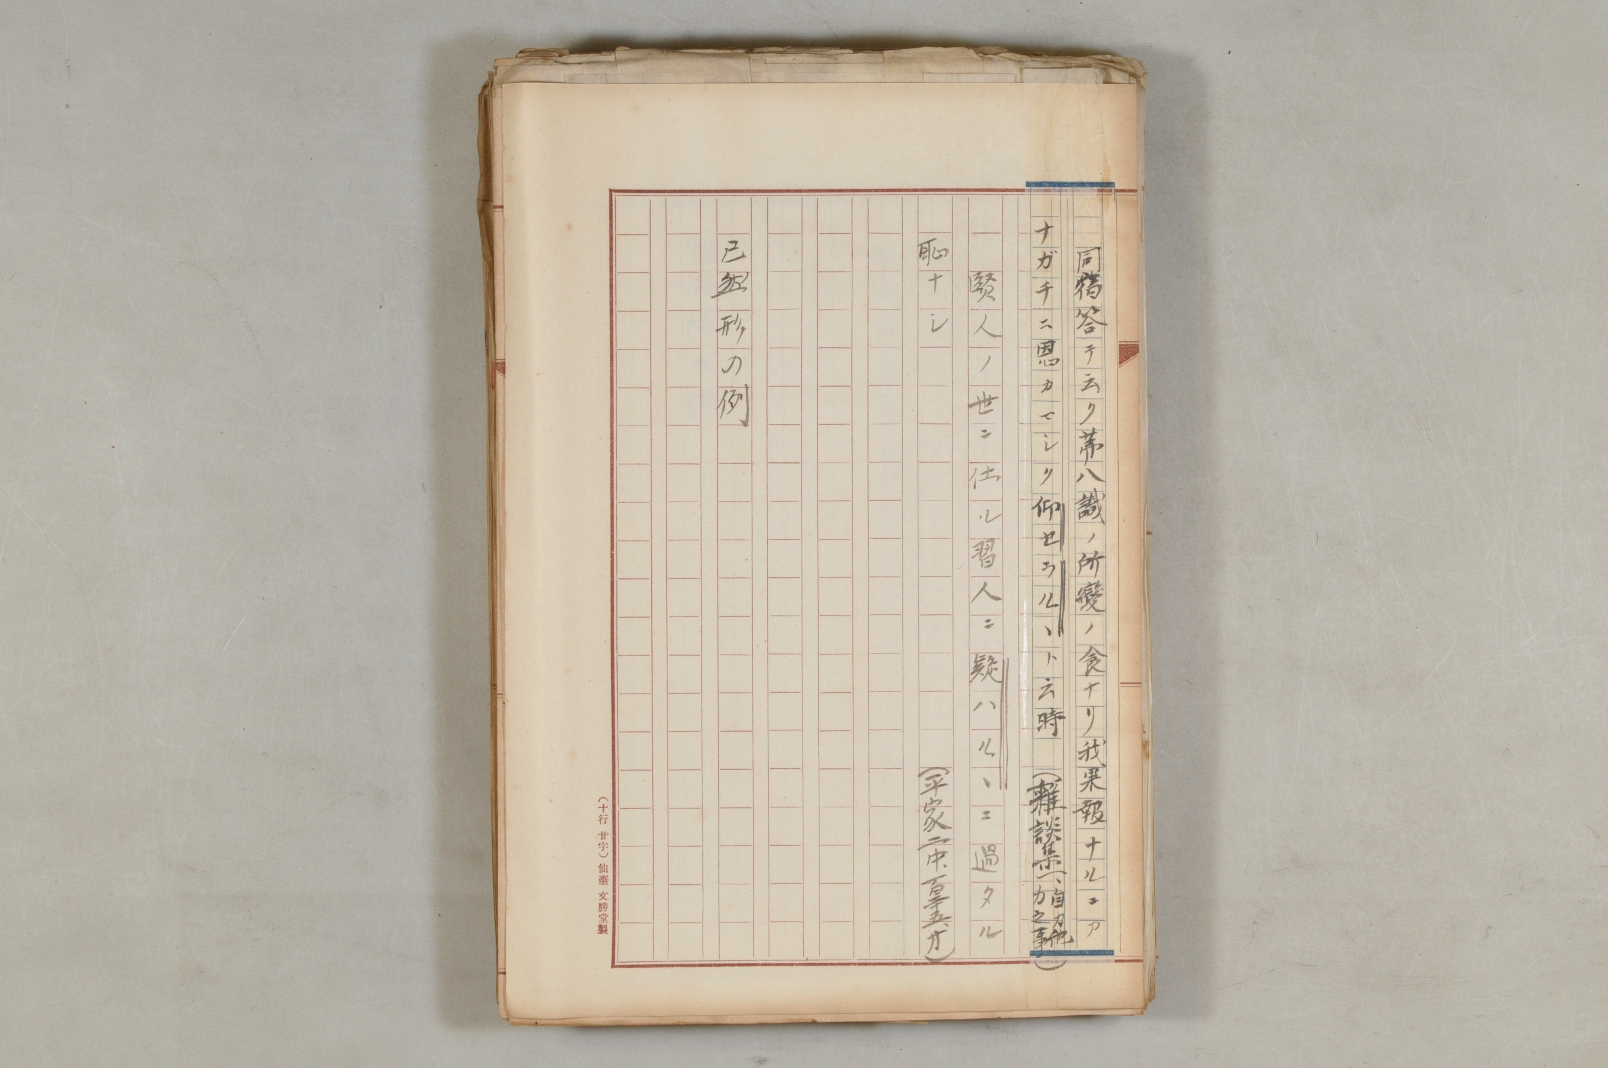 同宿答テ云ク第八識ノ所變ノ食ナリ我果報ナルニア
ナガチニ恩カマシク仰セラルヽト云時　(雜談集一、自力他力之事)
賢人ノ世ニ仕ル習人ニ疑ハルヽニ過タル
恥ナシ　(平家二中、
已然形の例
(十行 廿字) 仙臺 文勝堂製